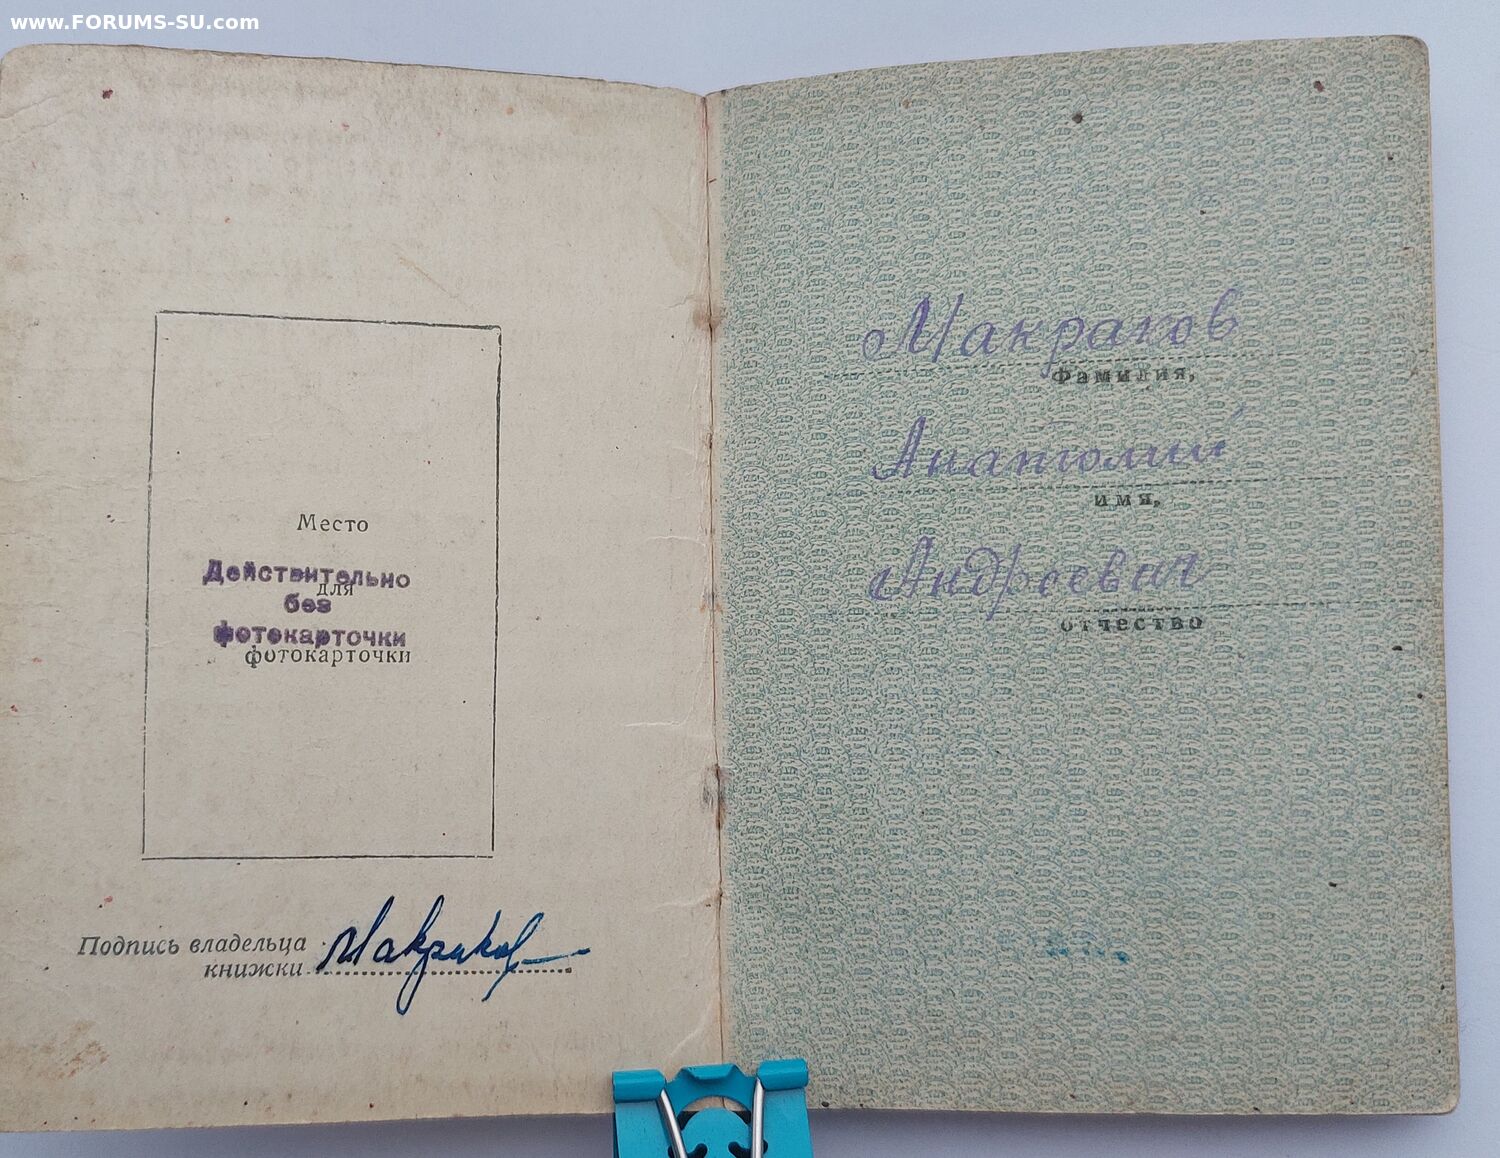 www.FORUMS-SU.com
Место
Действительно
для
без
фотокарточки
фотокарточки
Подпись владельца
книжки Макраков
Макраков
фамилия,
Анатолий
имя,
Андреевич
отчество